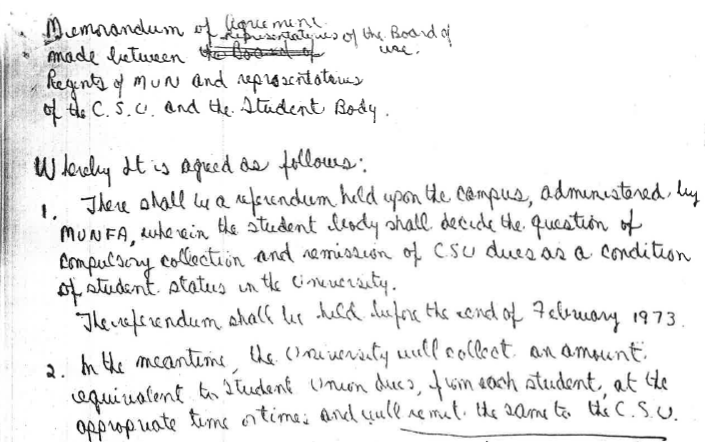 Memorandum of Agreement
representatives of the Board of
made between the Board of
Regents of MUN and representatives
of the C.S.U. and the Student Body.
Whereby It is agreed as follows:
1. There shall be a referendum held upon the campus, administered by
MUNFA, wherein the student body shall decide the question of
compulsory collection and remission of CSU dues as a condition
of student status in the University.
The referendum shall be held before the end of February 1973.
2. In the meantime, the University will collect an amount
equivalent to Student Union dues, from each student, at the
appropriate time or times and will remit the same to the C.S.U.